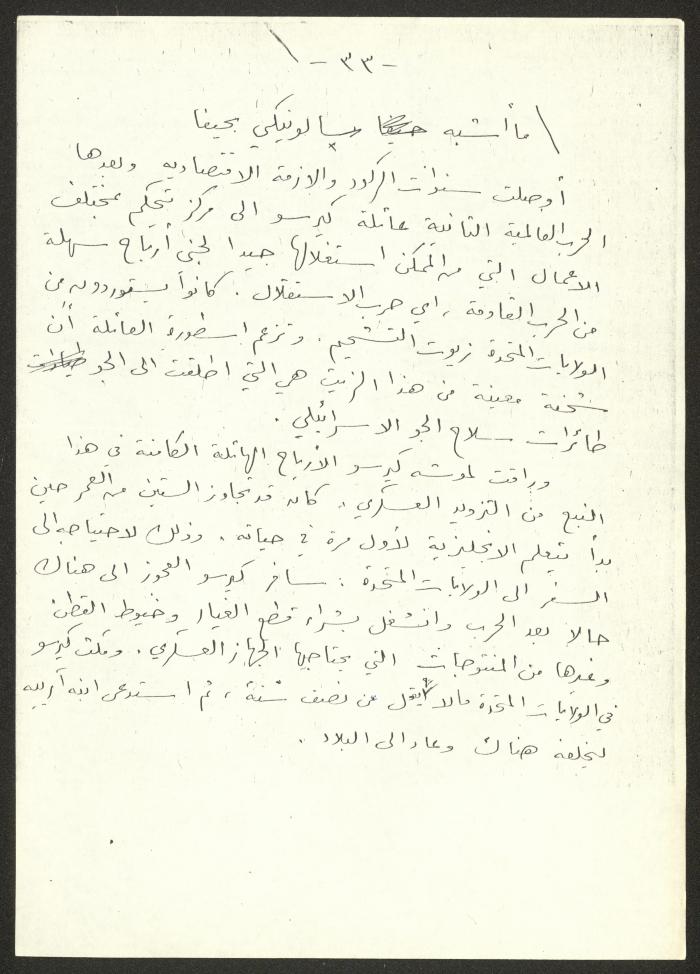 - ٣٣ -
ما أشبه سالونيكي بحيفا
أوصلت سنوات الركود والازمة الاقتصادية وبعدها
الحرب العالمية الثانية عائلة كرسو الى مركز تحكم بمختلف
الاعمال التي من الممكن استغلالها جيدا لجني أرباح سهلة
من الحرب القادمة ، اي حرب الاستقلال . كانوا يستوردون من
الولايات المتحدة زيوت التشحيم . وتزعم اسطورة العائلة أن
شحنة معينة من هذا الزيت هي التي اطلقت الى الجو
طائرات سلاح الجو الاسرائيلي .
وراقت لموشه كرسو الأرباح الهائلة الكامنة في هذا
النبع من التزويد العسكري . كان قد تجاوز الستين من العمر حين
بدأ يتعلم الانجليزية لأول مرة في حياته . وذلك لاحتياجه الى
السفر الى الولايات المتحدة . سافر كرسو العجوز الى هناك
حالا بعد الحرب وانشغل بشراء قطع الغيار وخيوط القطن
وغيرها من المنتوجات التي يحتاجها الجهاز العسكري . ومكث كرسو
في الولايات المتحدة ما لا يقل عن نصف سنة ، ثم استدعى ابنه أرييه
ليخلفه هناك وعاد الى البلاد .